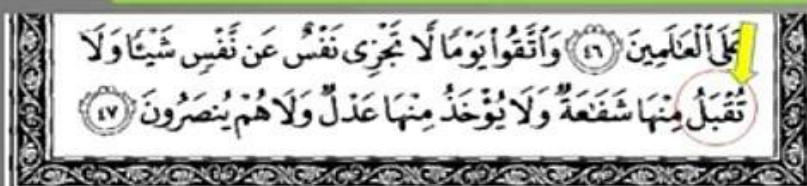 عَلَى ٱلْعَٰلَمِينَ ٤٦ وَٱتَّقُوا۟ يَوْمًا لَّا تَجْزِى نَفْسٌ عَن نَّفْسٍ شَيْـًٔا وَلَا
تُقْبَلُ مِنْهَا شَفَٰعَةٌ وَلَا يُؤْخَذُ مِنْهَا عَدْلٌ وَلَا هُمْ يُنصَرُونَ ٤٧